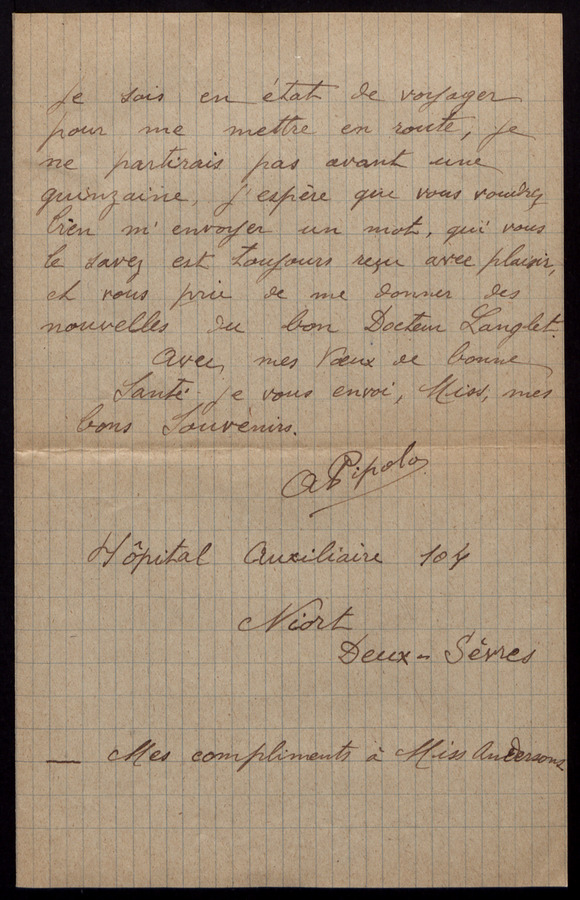 je sois en état de voyager
pour me mettre en route, je
ne partirais pas avant une
quinzaine, j'espère que vous voudrez
bien m'envoyer un mot, qui vous
le savez est toujours reçu avec plaisir,
et vous prie de me donner des
nouvelles du bon Docteur Langlet.
Avec mes Vœux de bonne
Santé. Je vous envoi, Miss, mes
bons Souvenirs.
A Pipolo
Hôpital Auxiliaire 104
Niort
Deux-Sèvres
— Mes compliments à Miss Andersons